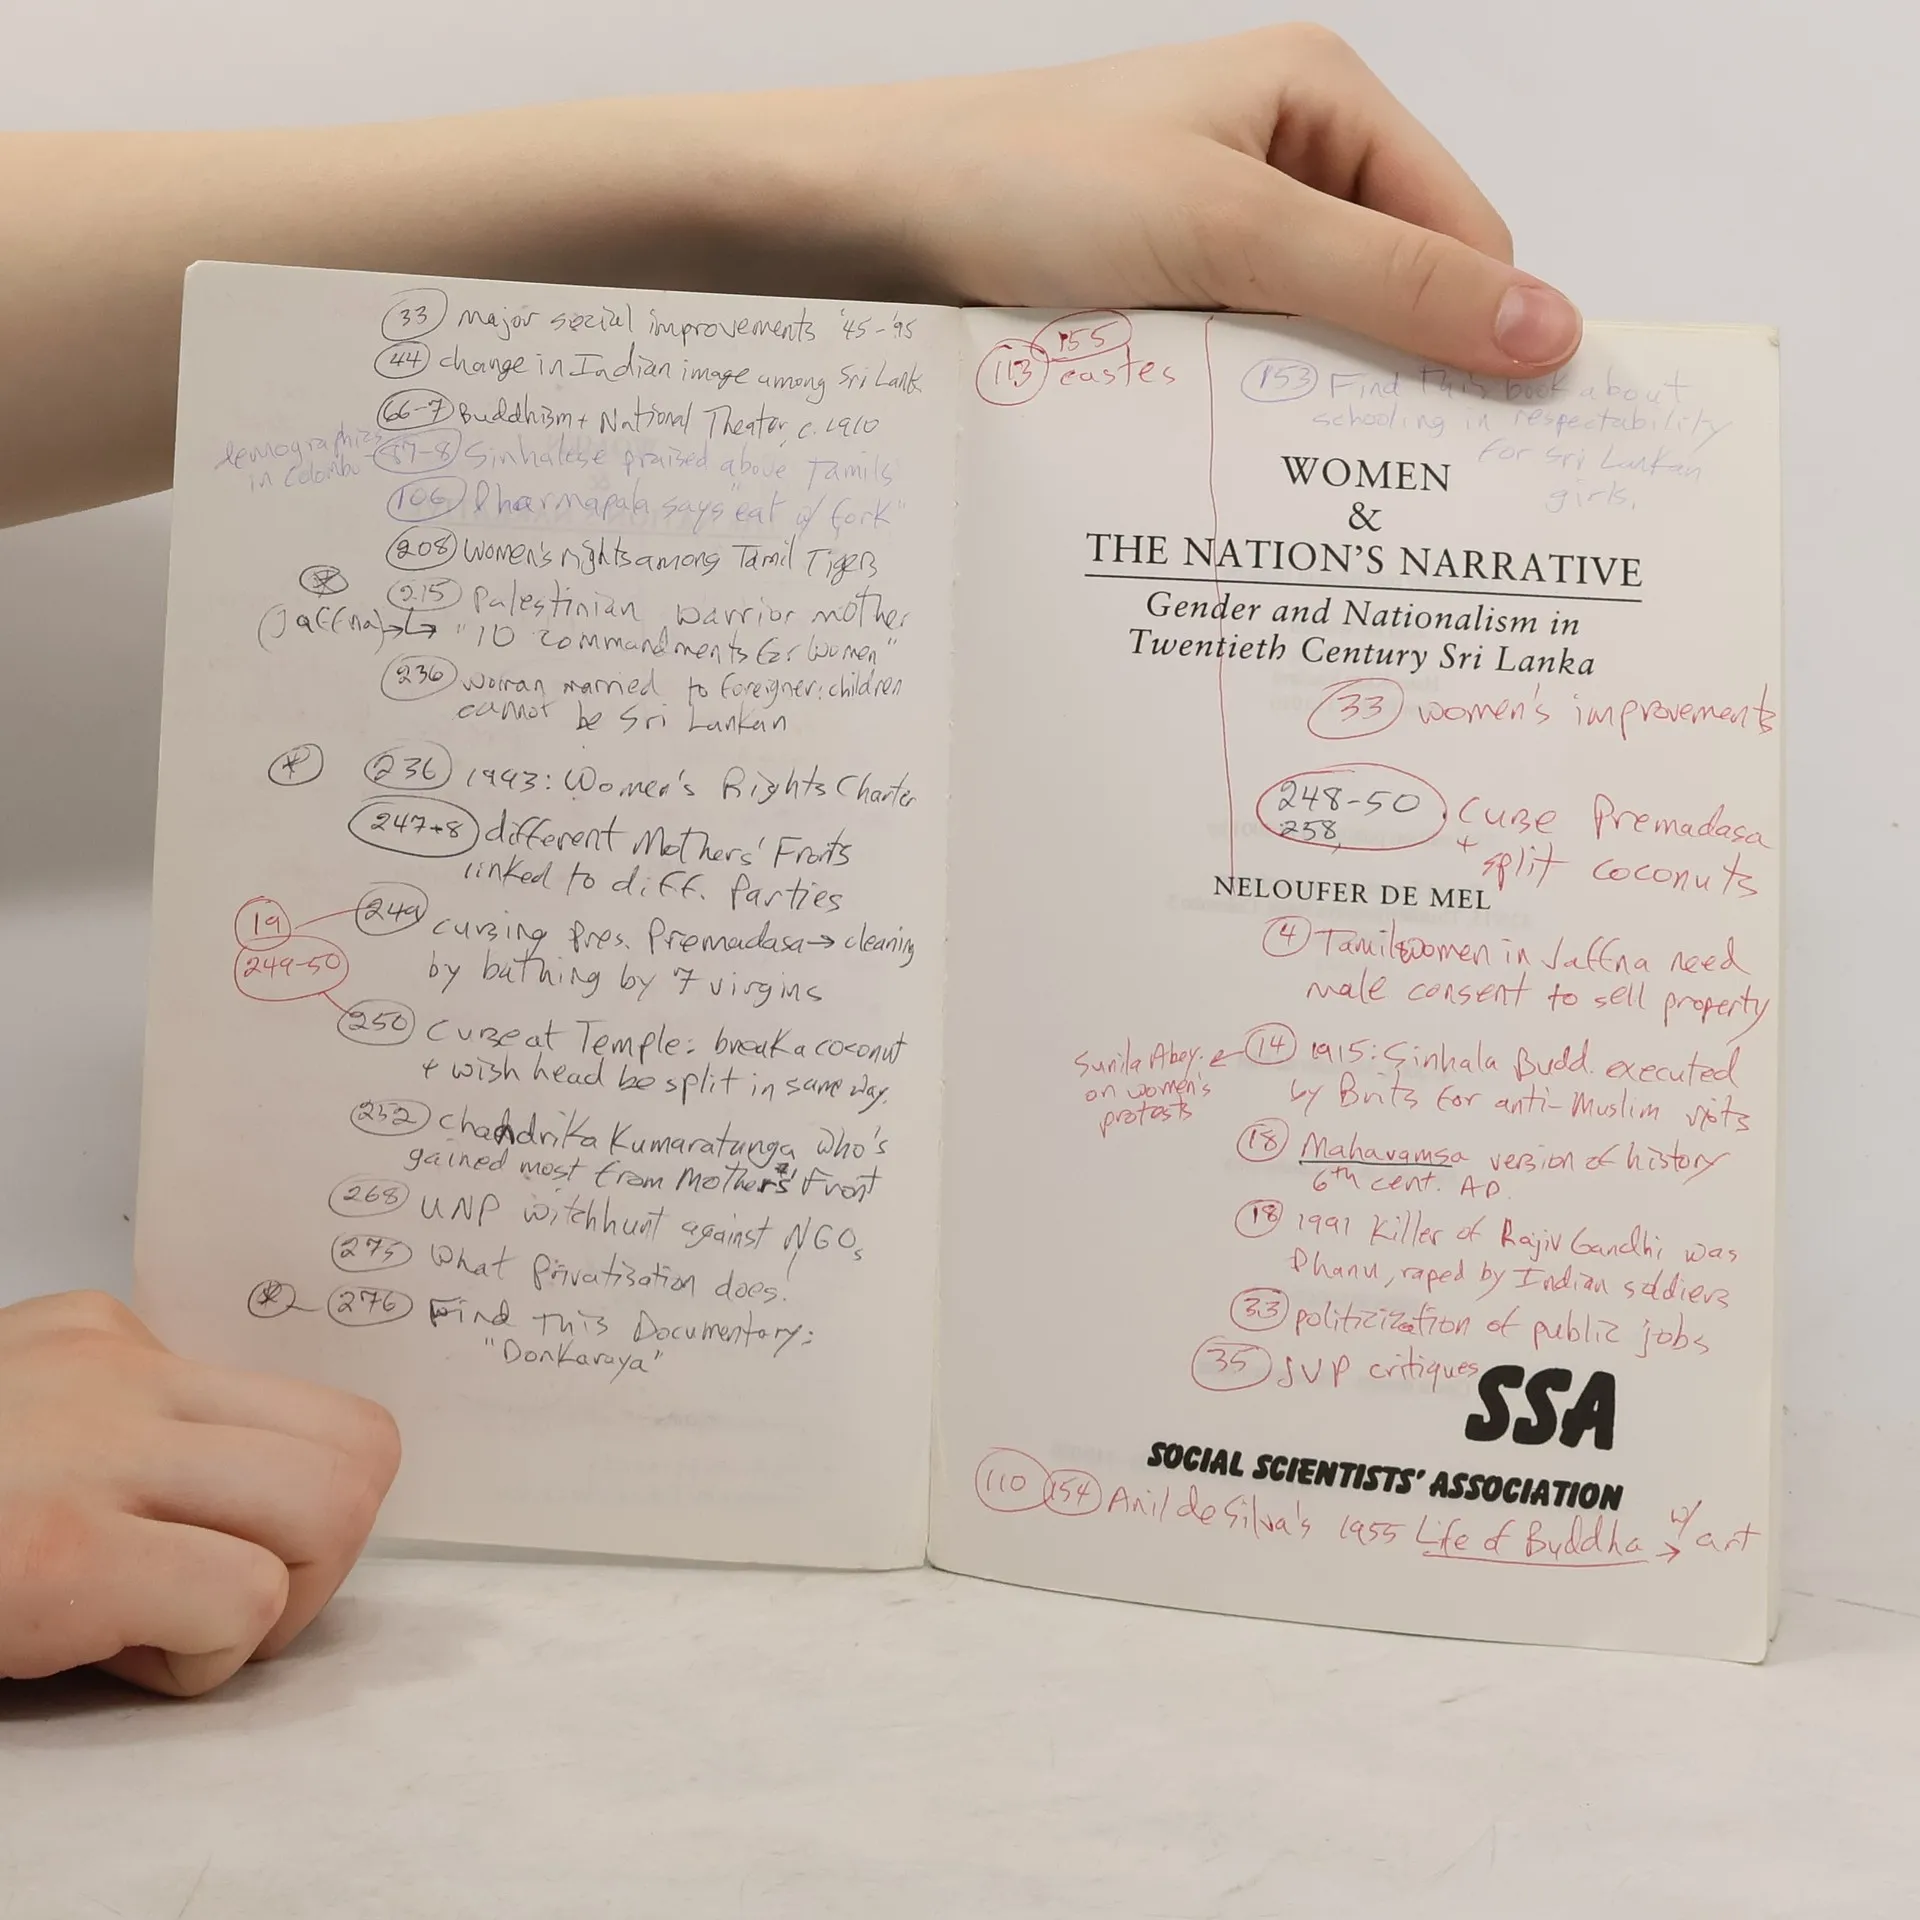 33 major social improvements '45-'95
44 change in Indian image among Sri Lank
66-7 Buddhism + National Theater, c. 1910
demographics
in Colombo - 87-8 Sinhalese praised above Tamils
106 Dharmapala says "eat w/ fork"
208 Women's rights among Tamil Tigers
215 Palestinian warrior mother
(Jaffna) → "10 commandments for women"
236 woman married to foreigner: children
cannot be Sri Lankan
236 1993: Women's Rights Charter
247+8 different Mothers' Fronts
linked to diff. Parties
19
249-50
249 cursing Pres. Premadasa → cleaning
by bathing by 7 virgins
250 Curse at Temple: break a coconut
+ wish head be split in same way.
252 Chandrika Kumaratunga who's
gained most from Mothers' Front
268 UNP witchhunt against NGOs
275 What Privatisation does!
276 Find This Documentary:
"Donkaraya"
155
113 castes
153 Find this book about
schooling in respectability
for Sri Lankan
girls.
WOMEN
&
THE NATION'S NARRATIVE
Gender and Nationalism in
Twentieth Century Sri Lanka
33 women's improvements
248-50 Curse Premadasa
258, + split coconuts
NELOUFER DE MEL
4 Tamil women in Jaffna need
male consent to sell property
Sunila Abey. ← 14 1915: Sinhala Budd. executed
on women's
protests
by Brits for anti-Muslim riots
18 Mahavamsa version of history
6th cent. AD.
18 1991 Killer of Rajiv Gandhi was
Dhanu, raped by Indian soldiers
33 politicization of public jobs
35 JVP critiques
SSA
SOCIAL SCIENTISTS' ASSOCIATION
110 154 Anil de Silva's 1955 Life of Buddha → w/ art